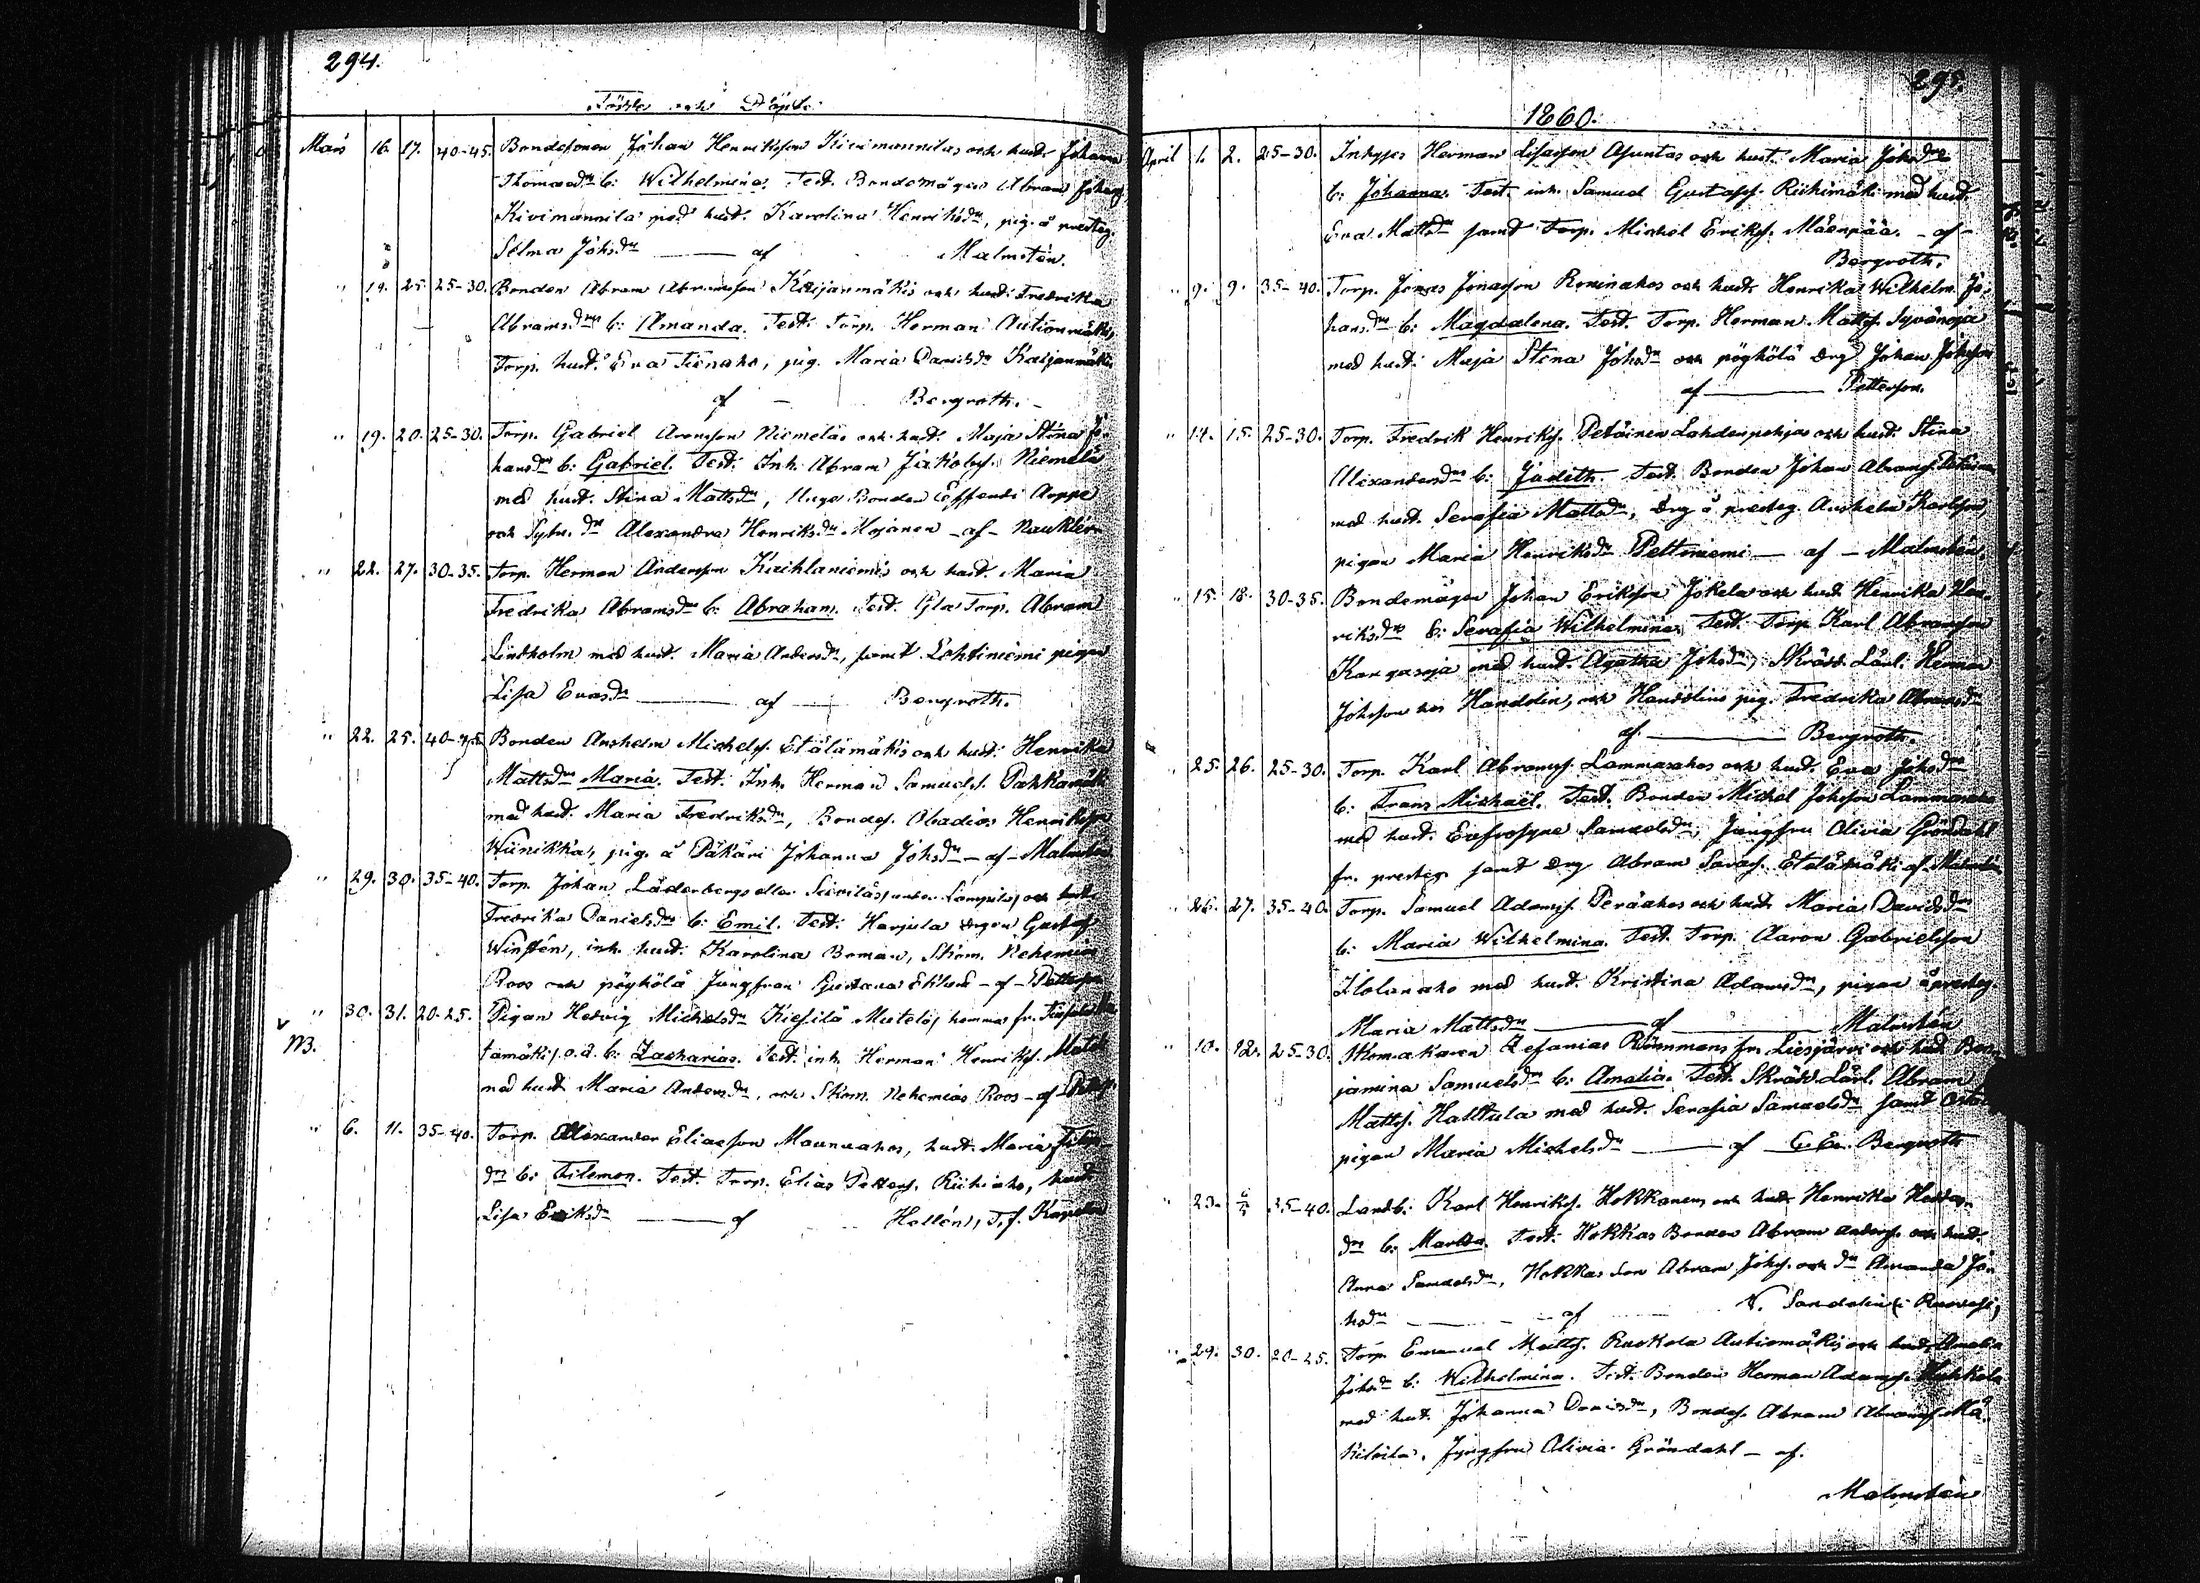 294.
Födde och Döpte.
Mars 16. 17. 40-45. Bondesonen Johan Henriksson Kivimannilas och hust. Johanna
Thomasdr b: Wilhelmina. Test. Bondemågen Abram Johans.
Kivimannila med hust. Karolina Henriksdr, pig. å presteg.
Selma Johsdr — af Malmstén.
" 19. 25. 25-30. Bonden Abram Abramsson Kaijanmäkis och hust. Fredrika
Abramsdrs b: Amanda. Test. Torp. Herman Autionmäki,
Torp. hust. Eva, pig. Maria Davidsdr Kaijanmäki
af — Bergroth.
" 19. 20. 25-30. Torp. Gabriel Aronsson Niemeläs och hust. Maja Stina Jo-
hansdrs b: Gabriel. Test. Inh. Abram Jakobss. Niemelä
med hust. Stina Mattsdr, Unge Bonden Effendi Aoppe
och dr Alexandra Henriksdr Mojanen - af - Naukler
" 22. 27. 30-35. Torp. Herman Andersson Kaihlaniemis och hust. Maria
Fredrika Abramsdr b: Abraham. Test. Gla Torp. Abram
Lindholm med hust. Maria Andersdr, samt Lahtiniemi pigan
Lisa Evasdr — af — Bergroth.
" 22. 25. 40-45. Bonden Anshelm Michelss. Etälämäkis och hust. Henrika
Mattsdrs Maria. Test. Inh. Herman Samuelss. Pahkamäki
med hust. Maria Fredriksdr, Bondes. Obadias Henriksson
Wiinikka, pig. å Päkäri Johanna Johsdr - af - Malmstén
" 29. 30. 35-40. Torp. Johan Läderbergs eller och hust.
Fredrika Danielsdrs b: Emil. Test. Harjula drgen Gustaf
Winstén, inh. hust. Karolina Boman, Skom. Nehemias
Roos och pöyhölä Jungfrun Gustava Eklund - af - Petterson
NB. " 30. 31. 20-25. Pigan Hedvig Michelsdr Kiesilä Mutelas
o.ä. b: Zacharias. Test. inh. Herman Henrikss. Mutel
med hust. Maria Andersdr, och Skom. Nehemias Roos - af
" 6. 11. 35-40. Torp. Alexander Eliasson Maunuahos, hust. Maria
drs b: Filemon. Test. Torp. Elias Petters. Riihiaho, hust.
Lisa Eriksdr — af Hollén,
295.
1860.
April 1. 2. 25-30. Inhyses Herman Lisasson Asuntas och hust. Maria Johsdrs
b: Johanna. Test. inh. Samuel Gustafss. Riihimäki med hust.
Eva Mattsdr samt Torp. Michel Erikss. Mäenpää. - af -
Bergroth.
" 9. 9. 35-40. Torp. Jonas Jonasson Roninahos och hust. Henrika Wilhelm. Jo-
hansdrs b: Magdalena. Test. Torp. Herman Mattss. Syvänoja
med hust. Maja Stina Johsdr och pöyhölä drg Johan Johsson
af — Petterson.
" 14. 15. 25-30. Torp. Fredrik Henrikss. Petäinen Lahdenpohjas och hust. Stina
Alexandersdrs b: Judith. Test. Bonden Johan Abrams.
med hust. Serafia Mattsdr, drg å presteg. Anshelm Karlsson,
pigan Maria Henriksdr Peltoniemi - af - Malmstén.
" 15. 18. 30-35. Bondemågen Johan Eriksson Jokelas och hust. Henrika Hen-
riksdrs b: Serafia Wilhelmina. Test. Torp. Karl Abramsson
Kangasoja med hust. Agatha Johsdr, Skrädd. Lärl. Herman
Johsson hos Handolin, och Handolins pig. Fredrika Abramsdr
af — Bergroth.
" 25. 26. 25-30. Torp. Karl Abramss. Lammasahos och hust. Eva Johsdrs
b: Frans Michael. Test. Bonden Michel Johsson Lammasaho
med hust. Eufrosyne Samuelsdr, Jungfru Olivia Gröndahl
fr. presteg. samt drg Abram Etelämäki af Malmstén
" 26. 27. 35-40. Torp. Samuel Adamss. Peräahos och hust. Maria Davidsdrs
b: Maria Wilhelmina. Test. Torp. Aaron Gabrielsson
Ilolanaho med hust. Kristina Adamsdr, pigan å presteg.
Maria Mattsdr — af — Malmstén
" 10. 12. 25-30. Skomakaren Zefanias Rönnmans fr. Liesjärvi och hust. Ben-
jamina Samuelsdr b: Amalia. Test. Skräd. Lärl. Abram
Mattss. Halttula med hust. Serafia Samuelsdr samt
pigan Maria Michelsdr — af Bergroth
" 23. 6/5 35-40. Landb: Karl Henrikss. Hokkanens och hust. Henrika
drs b: Martha. Test. Hokkas Bonden Abram Anderss. och hust.
Anna Samuelsdr, Hokkas son Abram Johss. och dr Amanda Jo-
hsdr — af V. Sandelin i Ruovesi,
" 29. 30. 20-25. Torp. Emanuel Mattss. Ruokola Autiomäkis och hust. Amalia
Johsdr b: Wilhelmina. Test. Bonden Herman Adamss. Hokkola
med hust. Johanna Davidsdr, Bondes. Abram Abramss. Mä-
kiloila. Jungfru Olivia Gröndahl - af.
Malmstén